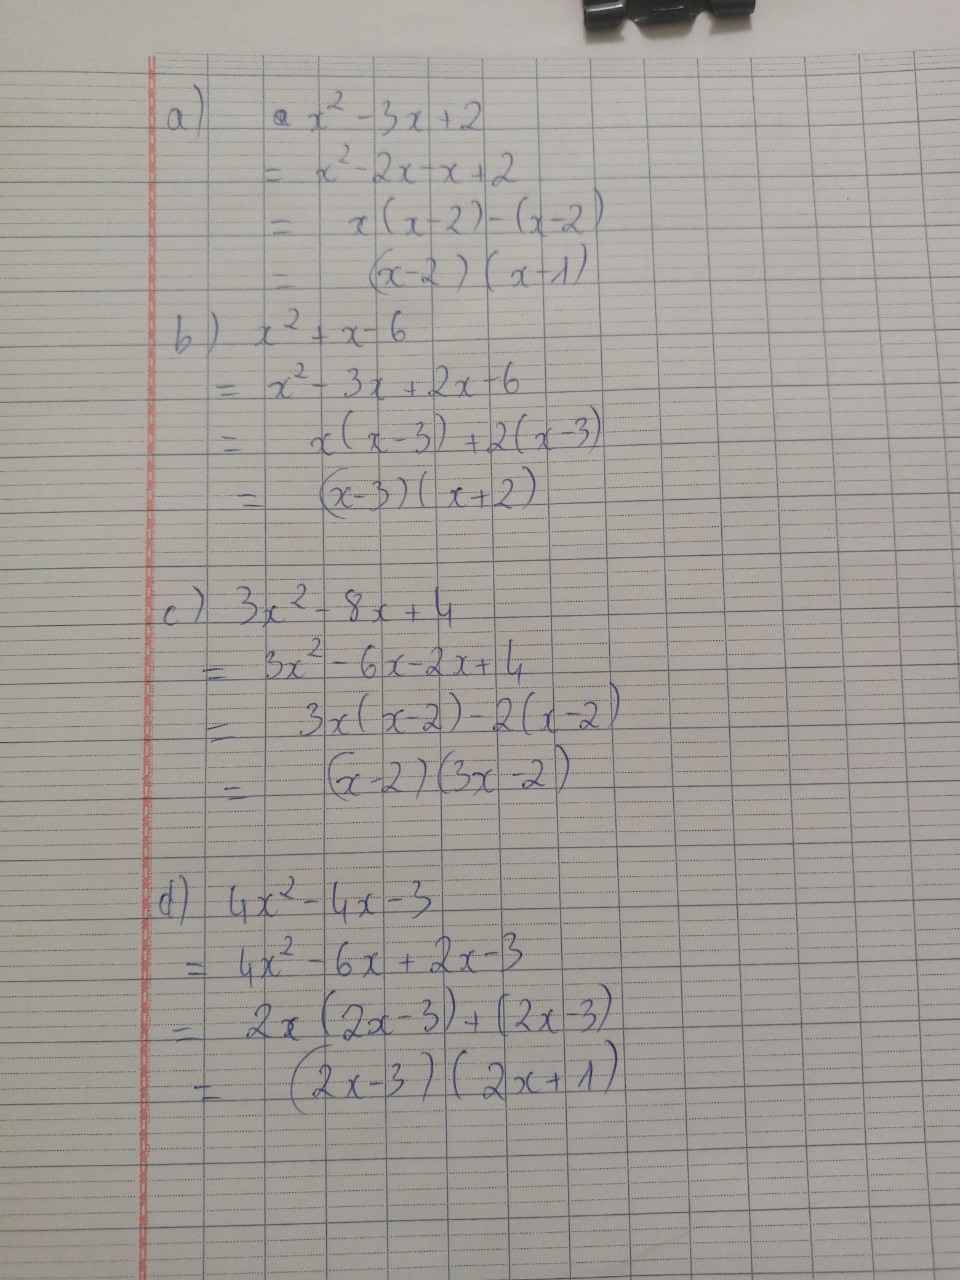 a) x² - 3x + 2
= x² - 2x - x + 2
= x(x-2) - (x-2)
= (x-2)(x-1)
b) x² + x - 6
= x² - 3x + 2x - 6
= x(x-3) + 2(x-3)
= (x-3)(x+2)
c) 3x² - 8x + 4
= 3x² - 6x - 2x + 4
= 3x(x-2) - 2(x-2)
= (x-2)(3x-2)
d) 4x² - 4x - 3
= 4x² - 6x + 2x - 3
= 2x(2x-3) + (2x-3)
= (2x-3)(2x+1)